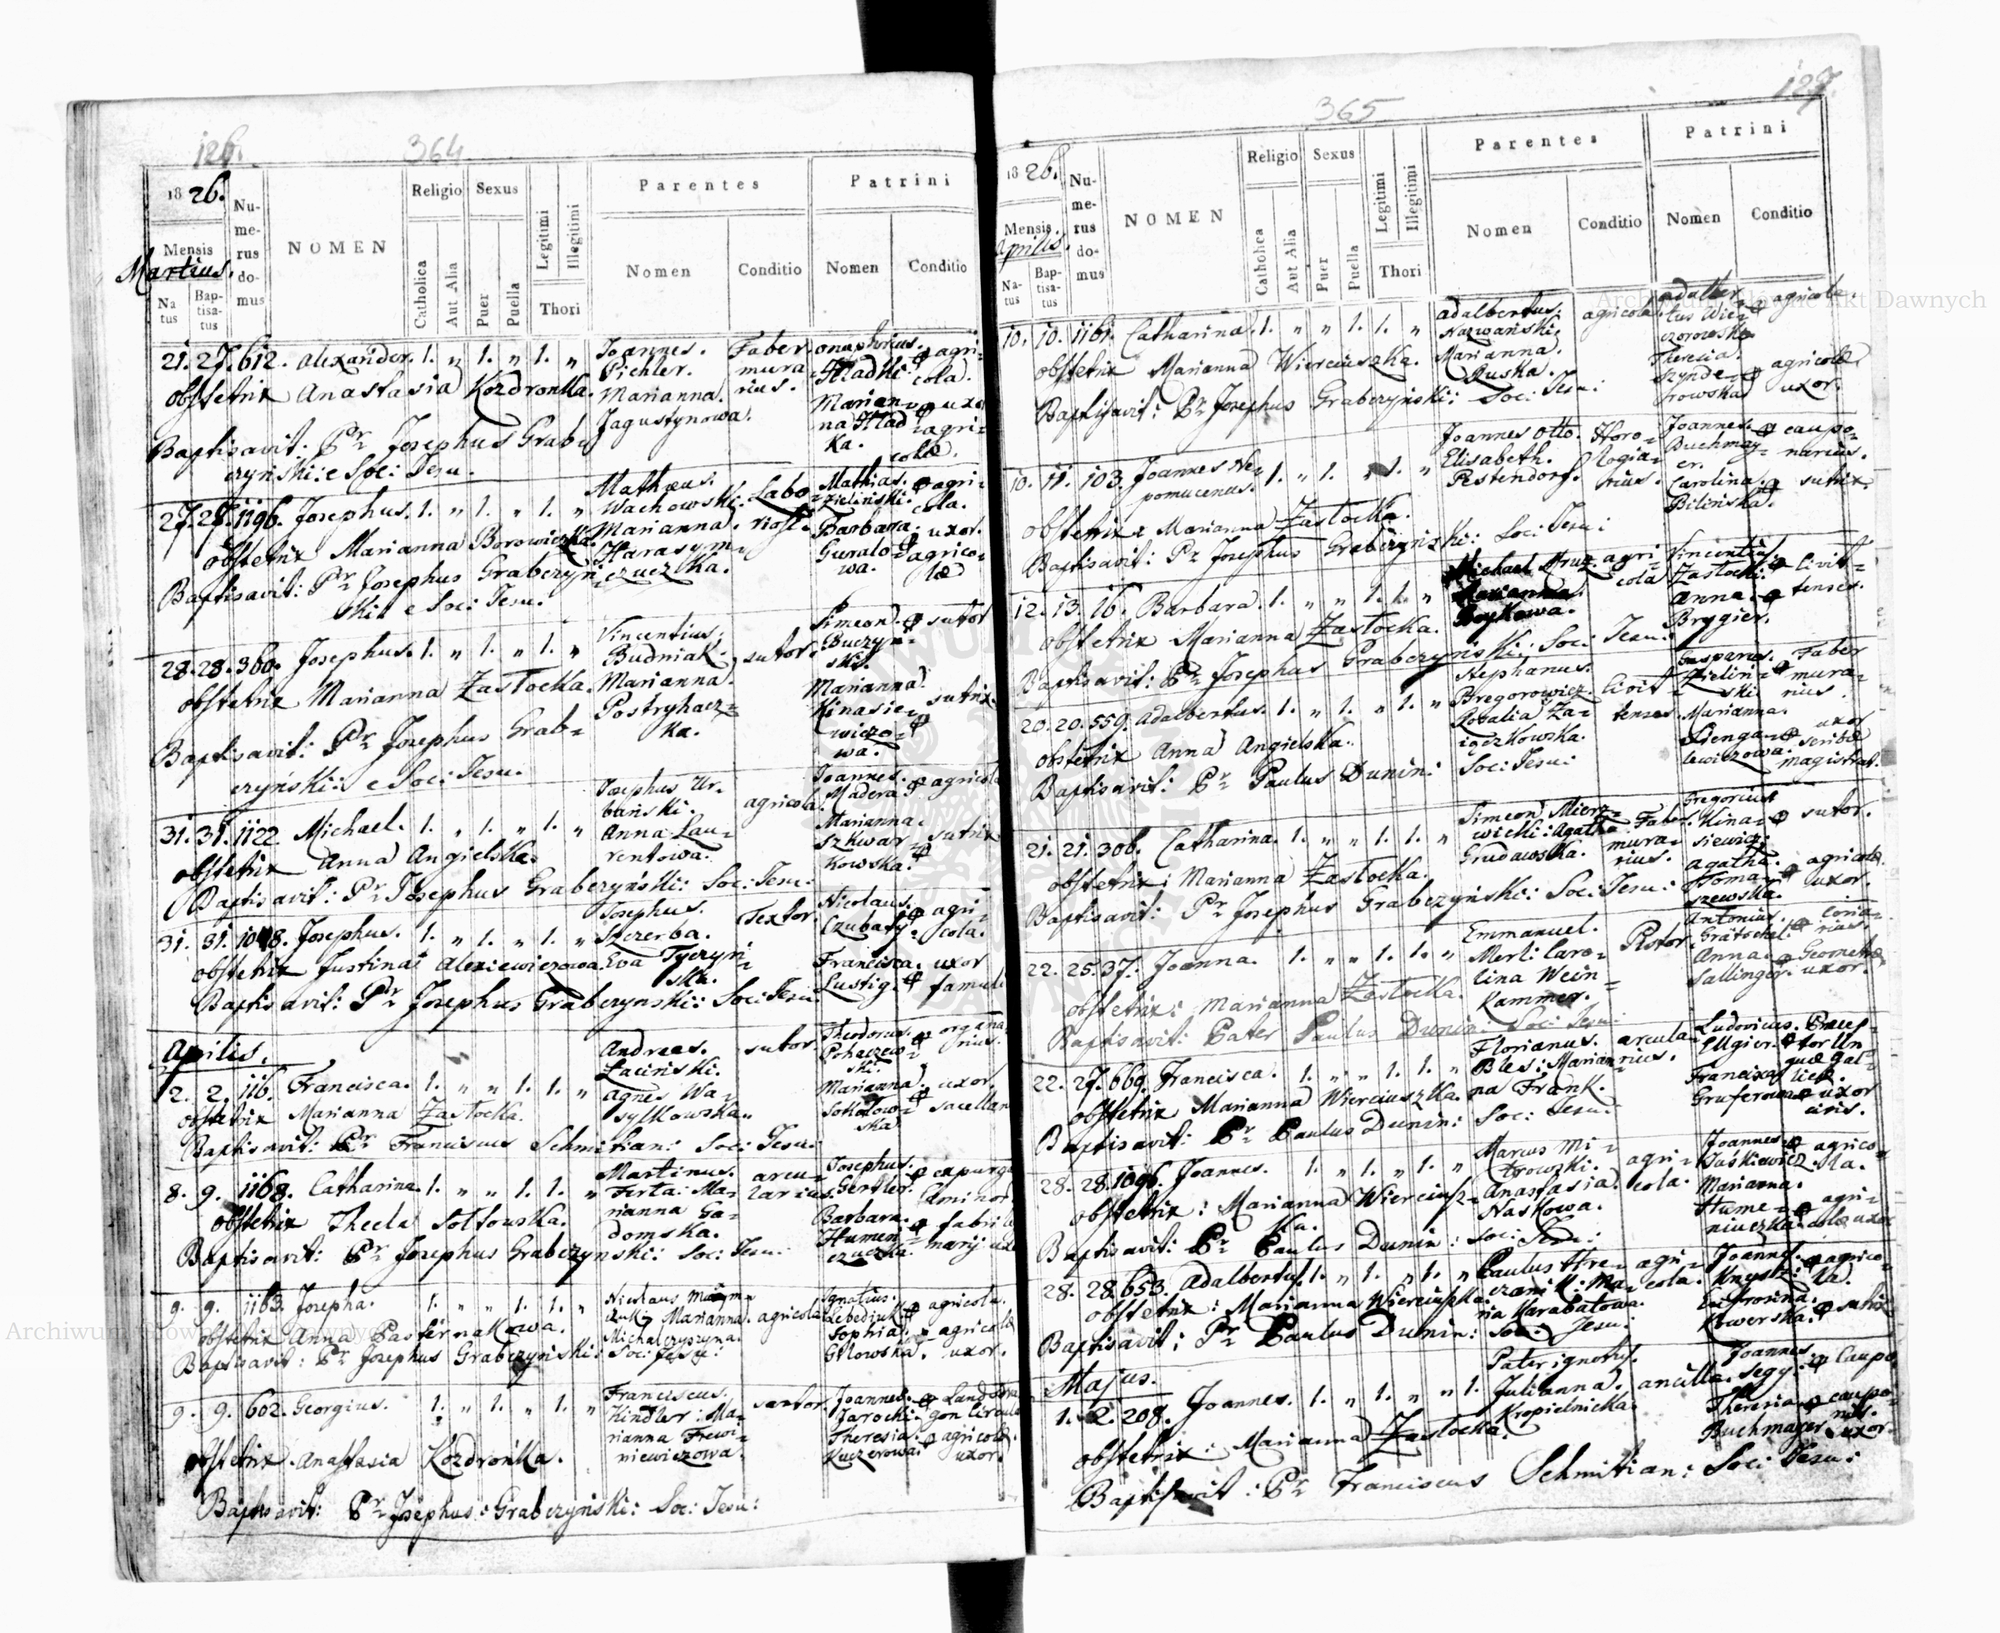 126.
364
1826.
Mensis
Martius.
Natus
Baptisatus
Numerus domus
NOMEN
Religio
Catholica
Aut Alia
Sexus
Puer
Puella
Legitimi
Illegitimi
Thori
Parentes
Nomen
Conditio
Patrini
Nomen
Conditio
21. 27. 612. Alexander. 1. „ 1. „ 1. „
Joannes.
Pichler.
Marianna.
Jagustynowa.
Faber
mura
rius.
Onuphrius.
Hladki
Marian-
na Hlad
ka.
agri-
cola.
uxor
agri-
colæ.
obstetrix Anastasia Kozdronka.
Baptisavit: Pr Josephus Grabczyński: e Soc: Jesu.
27. 27. 1196. Josephus. 1. „ 1. „ 1. „
Mathæus.
Wachowski.
Marianna.
Harasym-
czuczka.
Labo-
riosi.
Mathias.
Zieliński.
Barbara.
Guralo-
wa.
agri-
cola.
uxor.
agrico-
læ
obstetrix Marianna Borowiczka
Baptisavit: Pr Josephus Grabczyn-
ski: e Soc: Jesu.
28. 28. 360. Josephus. 1. „ 1. „ 1. „
Vincentius.
Budniak.
Marianna.
Postryhacz-
ka.
sutor.
Simeon.
Buczyn-
ski.
Marianna.
Kinasie-
wiczo-
wa.
sutor
sutrix
obstetrix Marianna Zastocka.
Baptisavit: Pr Josephus Grab-
czyński: e Soc: Jesu.
31. 31. 1122. Michael. 1. „ 1. „ 1. „
Josephus Ur-
bański.
Anna Lau-
rentowa.
agricola.
Joannes.
Madera.
Marianna.
Szkwar-
kowska.
agricola
sutrix
obstetrix Anna Angielska.
Baptisavit: Pr Josephus Grabczyński: Soc: Jesu:
31. 31. 1048. Josephus. 1. „ 1. „ 1. „
Josephus.
Szczerba.
Eva Tyczyń-
ska.
Textor.
Nicolaus.
Czubaty
Francisca.
Lustig.
agri-
cola.
uxor
famuli
obstetrix Justina Alexiewiczowa.
Baptisavit: Pr Josephus Grabczynski: Soc: Jesu:
Aprilis.
2. 2. 116. Francisca. 1. „ „ 1. 1. „
Andreas.
Laciński.
Agnes Wa-
sylkowska.
sutor
Theodorus.
Pohaczew-
ski.
Marianna.
Sokolow-
ska
organa-
rius.
uxor
sacellani
obstetrix Marianna Zastocka.
Baptisavit: Pr Franciscus Schmitian: Soc: Jesu:
8. 9. 1168. Catharina. 1. „ „ 1. 1. „
Martinus.
Firta: Ma-
rianna Ga-
domska.
arcu-
larius.
Josephus.
Gertler.
Barbara.
Humen-
czuczka.
expurga
Caminor.
fabri
obstetrix Thecla Soltowska.
Baptisavit: Pr Josephus Grabczynski: Soc: Jesu:
9. 9. 1163. Josepha. 1. „ „ 1. 1. „
Marianna.
Michalczyszyna.
agricola
Ignatius.
Lebediuk
Sophia.
Gtlowska.
agricola.
agricolæ
uxor.
obstetrix Anna Pasternakowa.
Baptisavit: Pr Josephus Grabczynski: Soc: Jesu:
9. 9. 602. Georgius. 1. „ 1. „ 1. „
Franciscus.
Kindler: Ma-
rianna Frewi-
niewiczowa.
sartor.
Joannes.
Jarocki.
Theresia.
Kuczerowa.
agricolæ.
uxor.
obstetrix Anastasia Kozdrońka.
Baptisavit: Pr Josephus: Grabczyński: Soc: Jesu:
127.
365
1826.
Mensis
Aprilis.
Natus
Baptisatus
Numerus domus
NOMEN
Religio
Catholica
Aut Alia
Sexus
Puer
Puella
Legitimi
Illegitimi
Thori
Parentes
Nomen
Conditio
Patrini
Nomen
Conditio
10. 10. 1161. Catharina. 1. „ „ 1. 1. „
Adalbertus.
Nazwański.
Marianna.
Ruska.
agricola.
Adalber-
tus Wie-
czorowski.
Theresia.
Szynde-
rowska
agricola
agricolæ
uxor.
obstetrix Marianna Wierciuszka.
Baptisavit: Pr Josephus Grabczyński: Soc: Jesu:
10. 11. 103. Joannes Ne-
pomucenus. 1. „ 1. „ 1. „
Joannes Otto.
Elisabeth.
Pestendorf.
Horo-
logia-
rius.
Joannes.
Buchmay-
er.
Carolina.
Bilinska.
caupo-
narius.
sutrix.
obstetrix Marianna Zastocka.
Baptisavit: Pr Josephus Grabczyński: Soc: Jesu:
12. 13. 16. Barbara. 1. „ „ 1. 1. „
Michael Hruz
Marianna
Boykowa.
agri-
cola
Vincentius.
Zastocki.
Anna.
Brygier.
Civit-
tenses.
obstetrix Marianna Zastocka.
Baptisavit: Pr Josephus Grabczyński: Soc: Jesu:
20. 20. 559. Adalbertus. 1. „ 1. „ 1. „
Stephanus.
Bregorowicz.
Rosalia Za-
iączkowska.
Civit-
tenses
Gasparus.
Zielin-
ski
Marianna.
Sienga-
lewiczowa.
Faber
mura-
rius.
uxor
scribæ
magistrat.
obstetrix Anna Angielska.
Baptisavit: Pr Paulus Dunin: Soc: Jesu:
21. 21. 306. Catharina. 1. „ „ 1. 1. „
Simeon Mierz-
wicki: Agatha
Grudawska.
Faber
mura-
rius.
Gregorius
Kina-
siewicz
Agatha.
Toma-
szewska.
sutor.
agricolæ
uxor.
obstetrix: Marianna Zastocka.
Baptisavit: Pr Josephus Grabczyński: Soc: Jesu:
22. 25. 37. Joanna. 1. „ „ 1. 1. „
Emmanuel.
Merl: Caro-
lina Wein-
kammer.
Pistor
Antonius.
Grätschel.
Anna.
Sallinger.
Coria-
rius.
Geometræ
uxor.
obstetrix: Marianna Zastocka.
Baptisavit: Pater Paulus Dunin: Soc: Jesu:
22. 27. 669. Francisca. 1. „ „ 1. 1. „
Florianus.
Bles: Marian-
na Frank.
arcula-
rius.
Ludovicus.
Ellgier.
Francisca
Gruferowa
Præcep-
tor lin
guæ Gal-
licæ.
uxor
civis.
obstetrix Marianna Wierciuszka.
Baptisavit: Pr Paulus Dunin: Soc: Jesu:
28. 28. 1096. Joannes. 1. „ 1. „ 1. „
Marcus Mi-
trowzki.
Anastasia
Haskowa.
agri-
cola.
Joannes.
Jaśkiewicz
Marianna.
Hume-
niuczka
agrico-
la.
agri-
colæ uxor
obstetrix: Marianna Wierciusz-
ka.
Baptisavit: Pr Paulus Dunin: Soc: Jesu:
28. 28. 653. Adalbertus. 1. „ 1. „ 1. „
Paulus Hre-
czanik: Ma-
ria Karabatowa.
agri-
cola.
Joannes.
Eufrosina.
Kowerska.
agrico-
la.
sutrix
obstetrix: Marianna Wierciuszka.
Baptisavit: Pr Paulus Dunin: Soc: Jesu:
Majus.
1. 2. 208. Joannes. 1. „ 1. „ „ 1.
Pater ignotus.
Julianna.
Kropielnicka.
ancilla.
Joannes.
Segy:
Theresia.
Buchmayer
Caupo
caupo-
nis.
uxor.
obstetrix: Marianna Zastocka.
Baptisavit: Pr Franciscus Schmitian: Soc: Jesu:
Archiwum Główne Akt Dawnych
Archiwum Główne Akt Dawnych